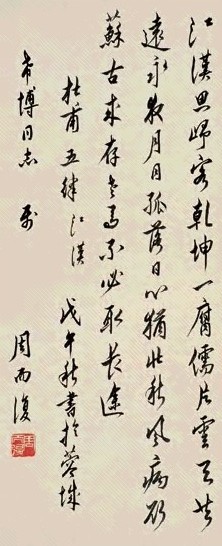 江漢思歸客乾坤一腐儒片雲天共
遠永夜月同孤落日心猶壯秋風病欲
蘇古來存老馬不必取長途
杜甫五律江漢 戊午秋書於蓉城
希博同志 属 周而復